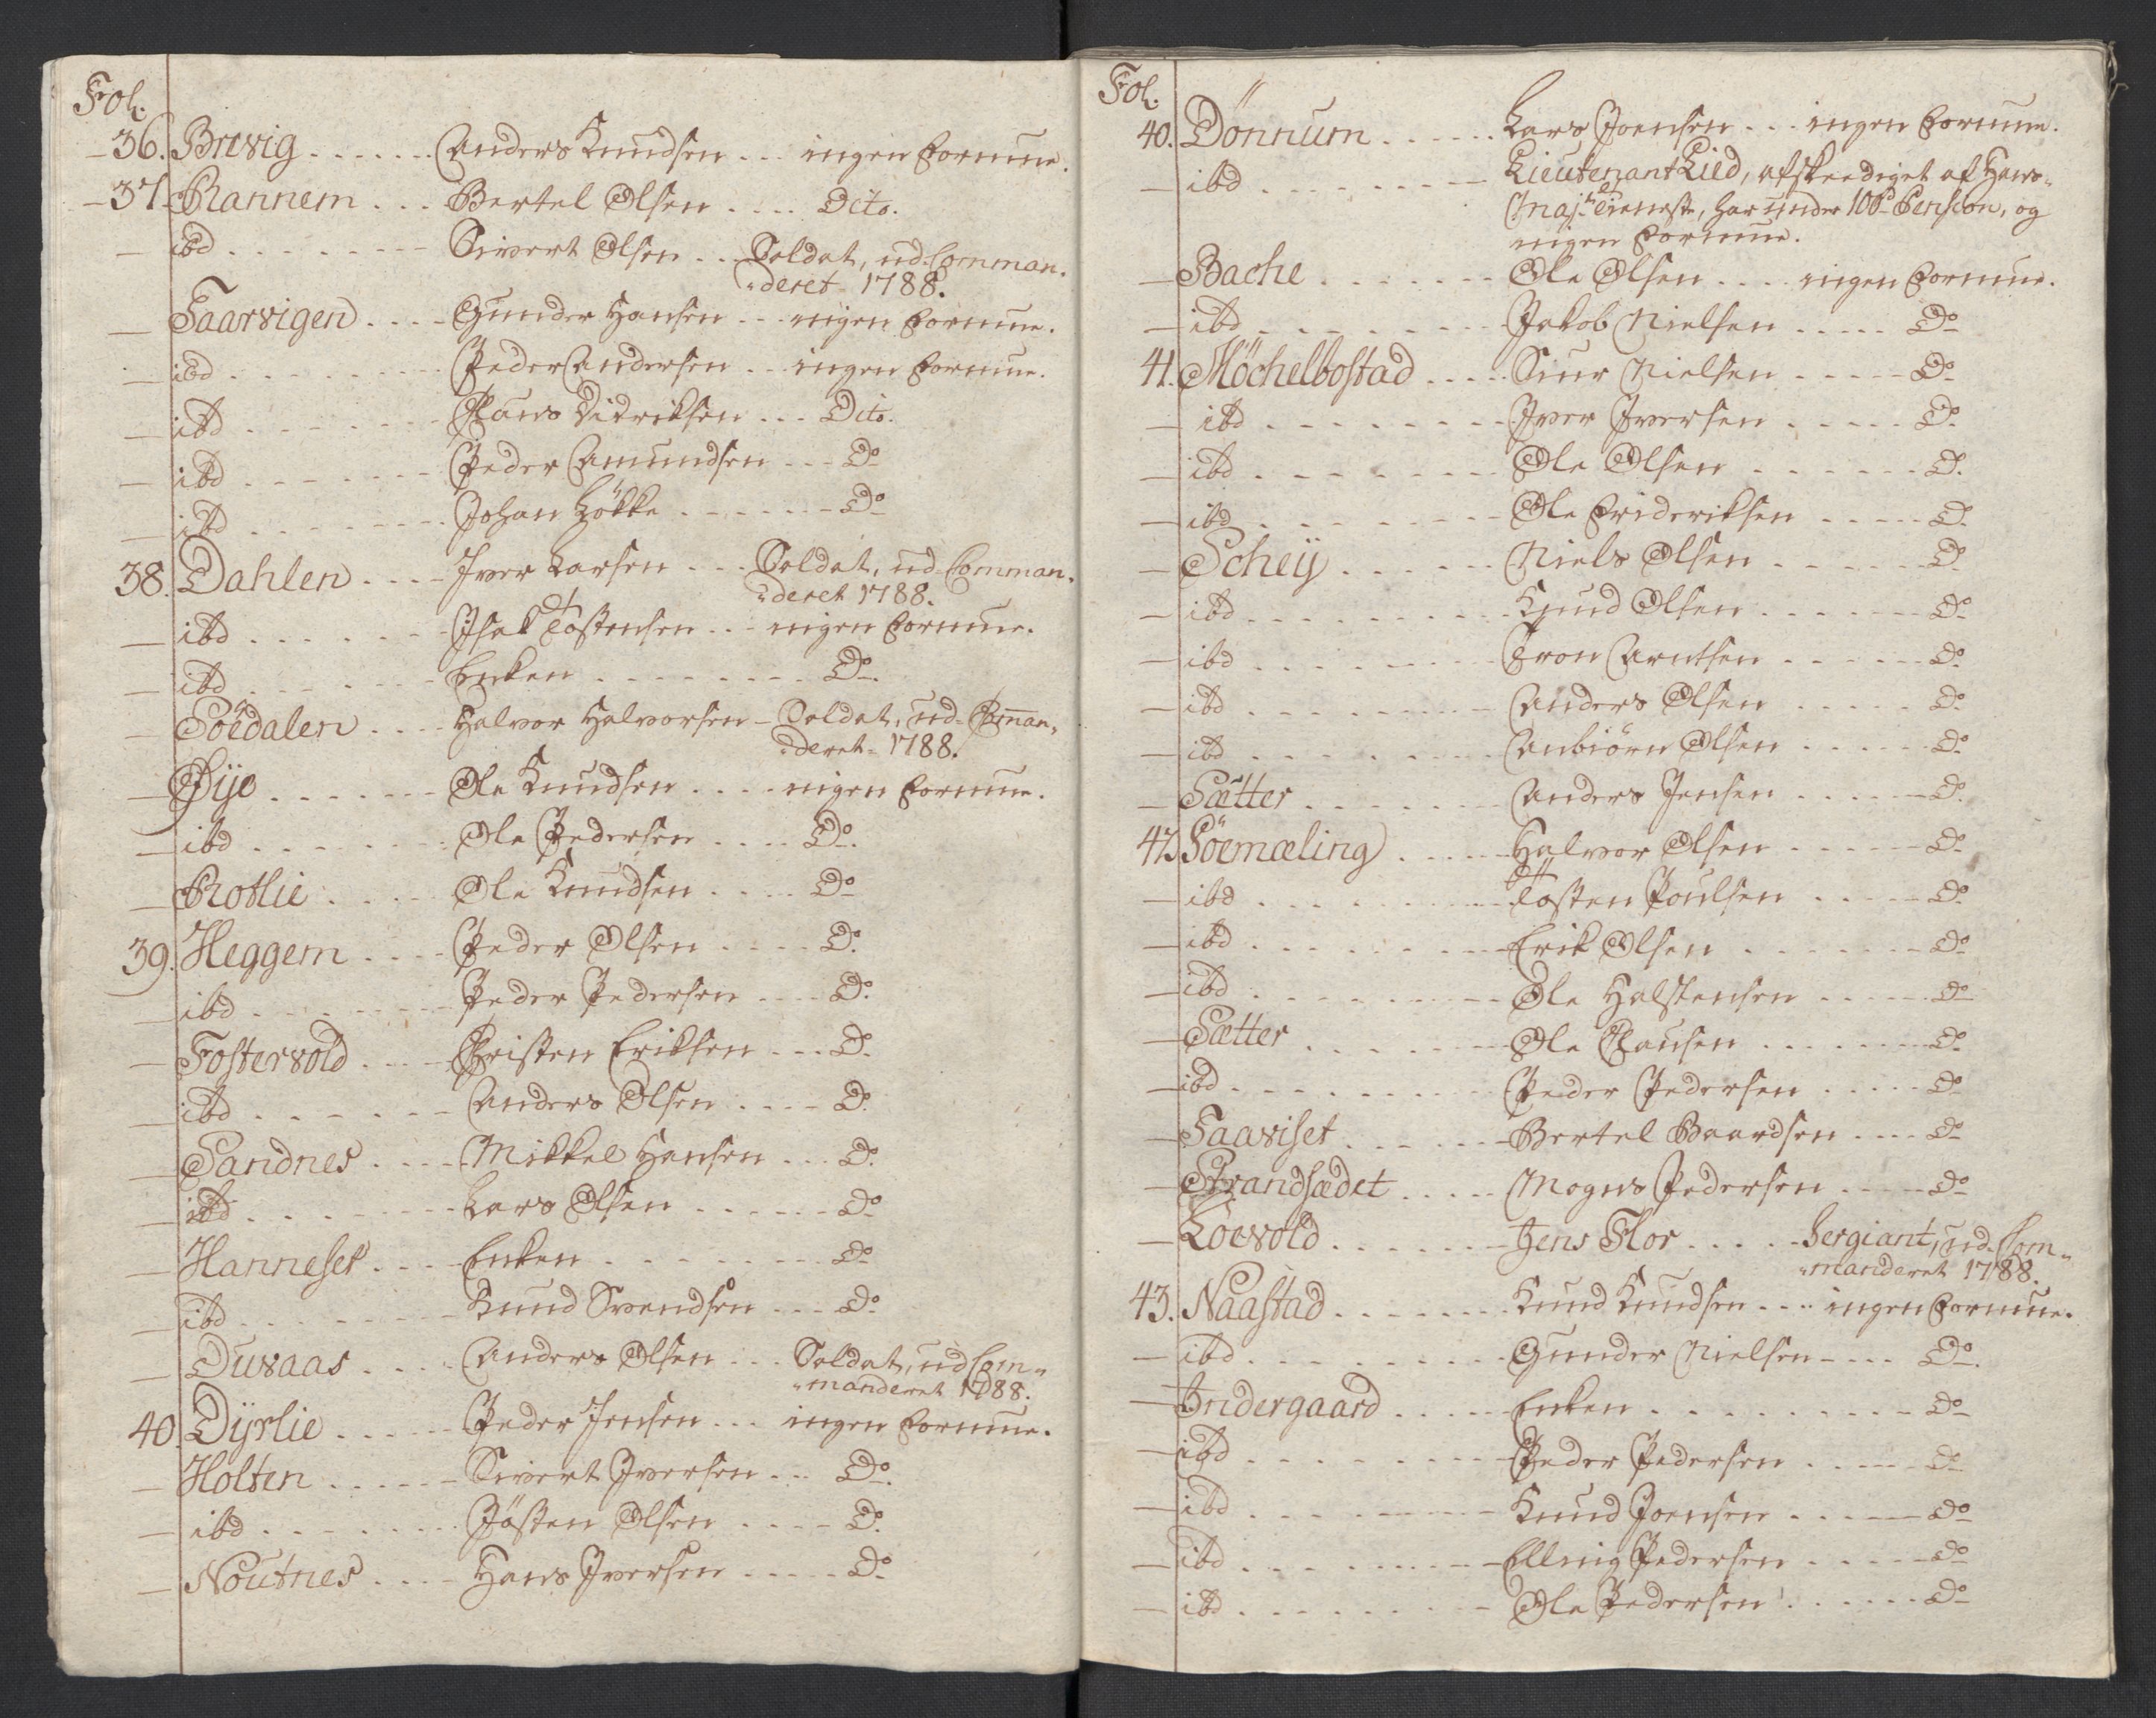 Fol.
36. Brevig . . . . . . . Anders Knudsen . . . ingen Formue.
37. Rannem . . . Bertel Olsen . . . . Dito.
ibd . . . . . . . . Sivert Olsen . . . Soldat, ud Comman„
„deret 1788.
Taarvigen . . . . Gunder Hansen . . . ingen Formue.
ibd . . . . . . . . Peder Andersen . . . ingen Formue.
ibd . . . . . . . Claus Didriksen . . . Dito.
ibd . . . . . . . Peder Amundsen . . . Do
ibd . . . . . . . . Johan Løkke . . . . . . . Do
38. Dahlen . . . . Iver Larsen . . . Soldat, ud Comman„
„deret 1788.
ibd . . . . . . . Isak Tostensen . . . ingen Formue.
ibd . . . . . . . Enken . . . . . . . . Do.
Söedalen . . . . Halvor Halvorsen - Soldat, ud Com̄an„
„deret 1788.
Øÿe . . . . . . . Ole Knudsen . . . . ingen Formue.
ibd . . . . . . . . Ole Pedersen . . . . Do.
Rotlie . . . . . Ole Knudsen . . . . Do
39. Heggem . . . . Peder Olsen . . . . Do.
ibd . . . . . . . Peder Pedersen . . . . Do.
Fostervold . . . . Christen Eriksen . . . Do.
ibd . . . . . . . Anders Olsen . . . . Do.
Sandnes . . . . Mikkel Hansen . . . Do.
ibd . . . . . . . . Lars Olsen . . . . . . Do
Hanneset . . . . Enken . . . . . . . . Do
ibd . . . . . . . . Knud Svendsen . . . Do
Duvaas . . . . Anders Olsen . . . Soldat, ud Com„
„manderet 1788.
40. Dÿrlie . . . . . Peder Jensen . . . ingen Formue.
Holten . . . . . . Sivert Iversen . . . Do.
ibd . . . . . . . . Jösten Olsen . . . . Do.
Noutnes . . . . Hans Iversen . . . . . Do
Fol.
40. Dönnum . . . . . . Lars Joensen . . . ingen Formue.
ibd . . . . . . . . . Lieutenant Lied, afskeediget af Hans„
Majts tieneste, har under 100rd Pension, og
ingen Formue.
Bache . . . . . . . Ole Olsen . . . . ingen Formue.
ibd . . . . . . . . . Jakob Nielsen . . . . . Do
41. Möchelbostad . . . . . Siur Nielsen . . . . . Do
ibd . . . . . . . . . Iver Iversen . . . . . Do.
ibd . . . . . . . . Ole Olsen . . . . . . . Do.
ibd . . . . . . . . . Ole Frideriksen . . . . . Do.
Scheÿ . . . . . . Niels Olsen . . . . . . . Do
ibd . . . . . . . . . Knud Olsen . . . . . . . Do
ibd . . . . . . . . . Tron Arntsen . . . . . . Do
ibd . . . . . . . . . Anders Olsen . . . . . . Do
ibd . . . . . . . . . Anbiörn Olsen . . . . . . Do
Sætter . . . . . . . Anders Jensen . . . . . . Do.
42. Söemæling . . . . . Halvor Olsen . . . . . . Do
ibd . . . . . . . . . Tosten Poulsen . . . . . Do
ibd . . . . . . . . . Erik Olsen . . . . . . . Do
ibd . . . . . . . . . Ole Halstensen . . . . . Do
Sætter . . . . . . . Ole Clausen . . . . . . . Do
ibd . . . . . . . . . Peder Pedersen . . . . . Do
Saaviset . . . . . . Bertel Baardsen . . . . Do
Strandsædet . . . . . Mogns Pedersen . . . . Do
Loevold . . . . . . . Jens Flor . . . . . Sergiant, ud Com„
„manderet 1788.
43. Naastad . . . . . . . Knud Knudsen . . . . ingen Formue.
ibd . . . . . . . . . Gunder Nielsen . . . . Do.
Indergaard . . . . . Enken . . . . . . . . . . Do
ibd . . . . . . . . . Peder Pedersen . . . . . Do
ibd . . . . . . . . . Knud Joensen . . . . . . Do
ibd . . . . . . . . . Elling Pedersen . . . . . Do
ibd . . . . . . . . . Ole Pedersen . . . . . . . Do